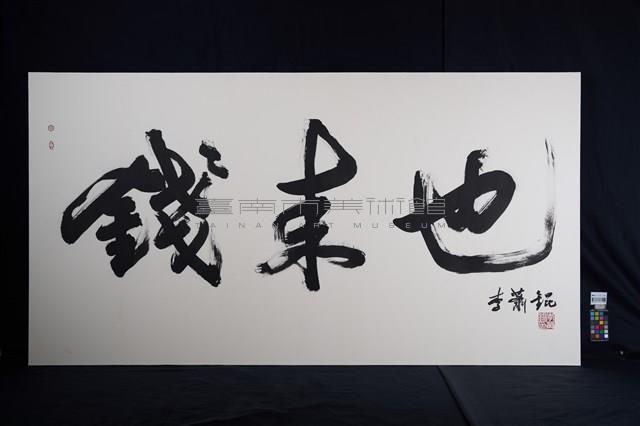 錢來也
臺南市美術館
TAINAN ART MUSEUM
李蕭錕